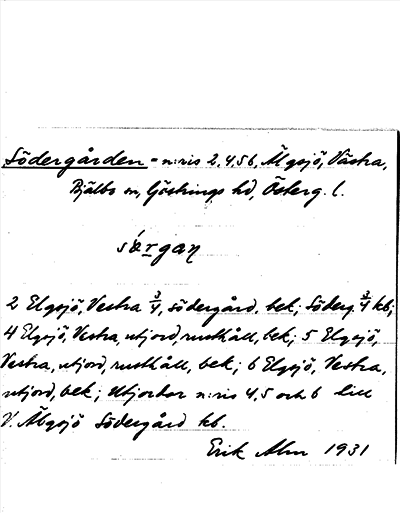 Södergården = n:ris 2,4,5,6, Älgsjö, Västra,
Bjälbo sn, Göstrings hd, Österg. l.
2 Elgsjö, Vestra 3/4, södergård, bek; Söderg. 3/4 kb;
4 Elgsjö, Vestra, utjord, rusthåll, bek; 5 Elgsjö,
Vestra, utjord, rusthåll, bek; 6 Elgsjö, Vestra,
utjord, bek; utjordar n:ris 4,5 och 6 till
V. Älgsjö Södergård kb.
Erik Alm 1931